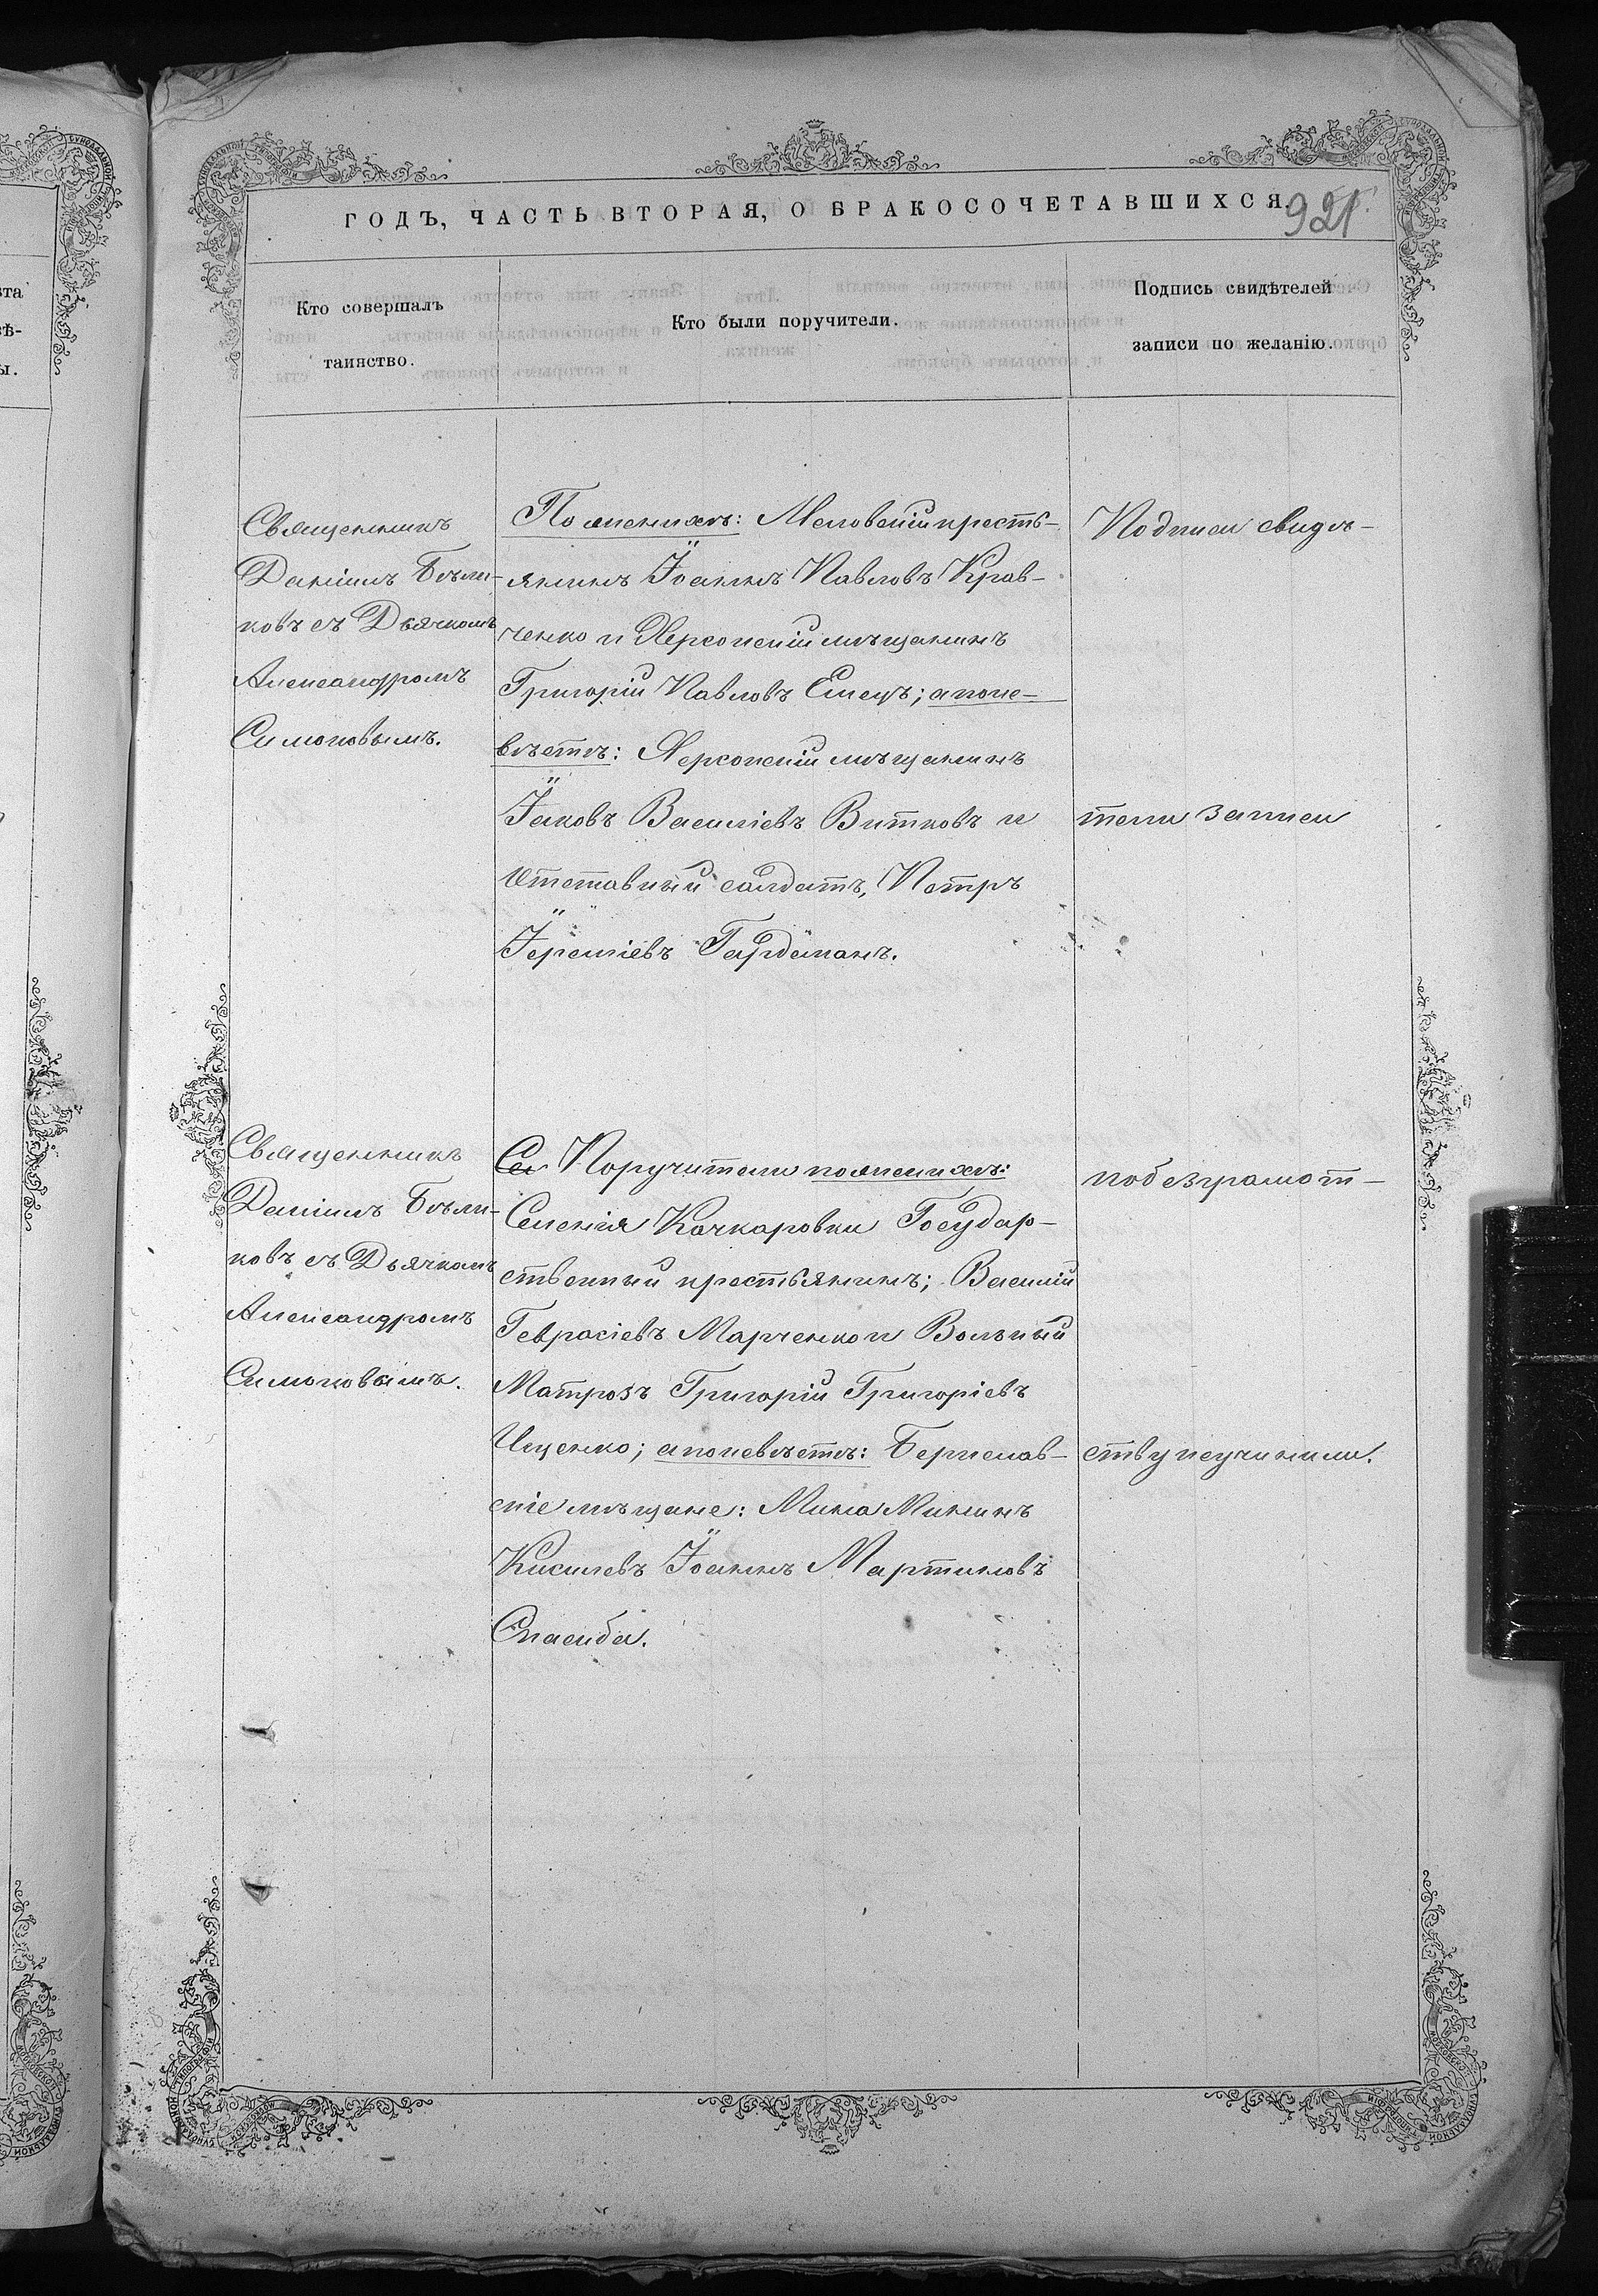 ГОДЪ, ЧАСТЬ ВТОРАЯ, О БРАКОСОЧЕТАВШИХСЯ.
921
Кто совершалъ
таинство.
Кто были поручители.
Подпись свидѣтелей
записи по желанію.
Священникъ
Даніилъ Бѣли-
ковъ съ Дьячкомъ
Александромъ
Симоновымъ.
По женихѣ: Меловскій кресть-
янинъ Іоаннъ Павловъ Крав-
ченко и Херсонскій мѣщанинъ
Григорій Павловъ Емецъ; а по не-
вѣстѣ: Херсонскій мѣщанинъ
Іаковъ Василіевъ Витковъ и
Отставный салдатъ, Петръ
Іереміевъ Гайдаманъ.
Подписи свидѣ-
тели записи
Священникъ
Даніилъ Бѣли-
ковъ съ Дьячкомъ
Александромъ
Симоновымъ.
Се Поручители по женихѣ:
Селенія Качкаровки Государ-
ственный крестьянинъ; Василій
Геврасіевъ Марченко и Вольный
Матрозъ Григорій Григоріевъ
Ищенко; а по невѣстѣ: Берислав-
скіе мѣщане: Мина Мининъ
Кисилевъ Іоаннъ Мартиновъ
Спасиба.
по безграмот-
ству неучинили.